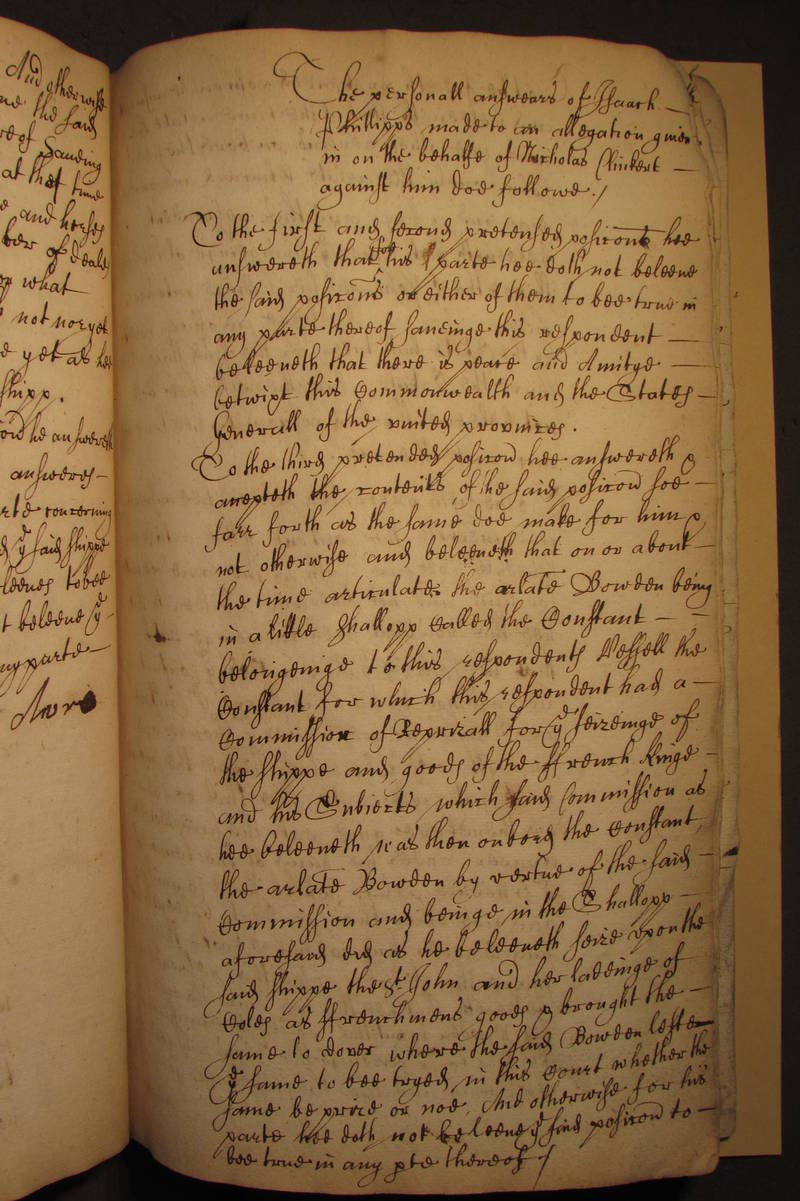 And otherwise
the said
re of Sanding
at that time
e and horses
ber of deales
what
not nor yet
e yet as hee
shipp.
on he answereth
answeres
rte concerning
d ye said shippe
leeves to bee
t beleeve ye
ny parte
The personall answears of Isaack
Phillipps made to an allegation given
in on the behalfe of Nicholas Clinkert
against him doe followe ./
To the first and second pretensed positions hee
answereth that for his parte hee doth not beleeve
the said positions or either of them to bee true in
any parte thereof saveinge this respondent
beleeveth that there is peace and Amitye
betwixt this Commonwealth and the States
Generall of the united provinces .
To the third pretended position hee answereth &
accepteth the contents of the said position soe
farr forth as the same doe make for him &
not otherwise and beleeveth that on or about
the time articulate the arlate Bowden being
in a little Shallopp called the Constant
belongeinge to this respondents Vessell the
Constant for which this respondent had a
Commission of Reprizall for ye seizeinge of
the shippe and goods of the ffrench Kinge
and his Subiects which said Commission as
hee beleeveth was then onbord the Constant,
the arlate Bowden by vertue of the said
Commission and beinge in the Shallopp
aforesaid did as he beleeveth seize upon the
said shippe the St. John and her ladeinge of
Coles as ffrenchmens goods & brought the
same to dover where the said Bowden lefte
ye same to bee tryed in this Court whether the
same be prize or noe, And otherwise for his
parte hee doth not beleeve ye said position to
bee true in any pte thereof /